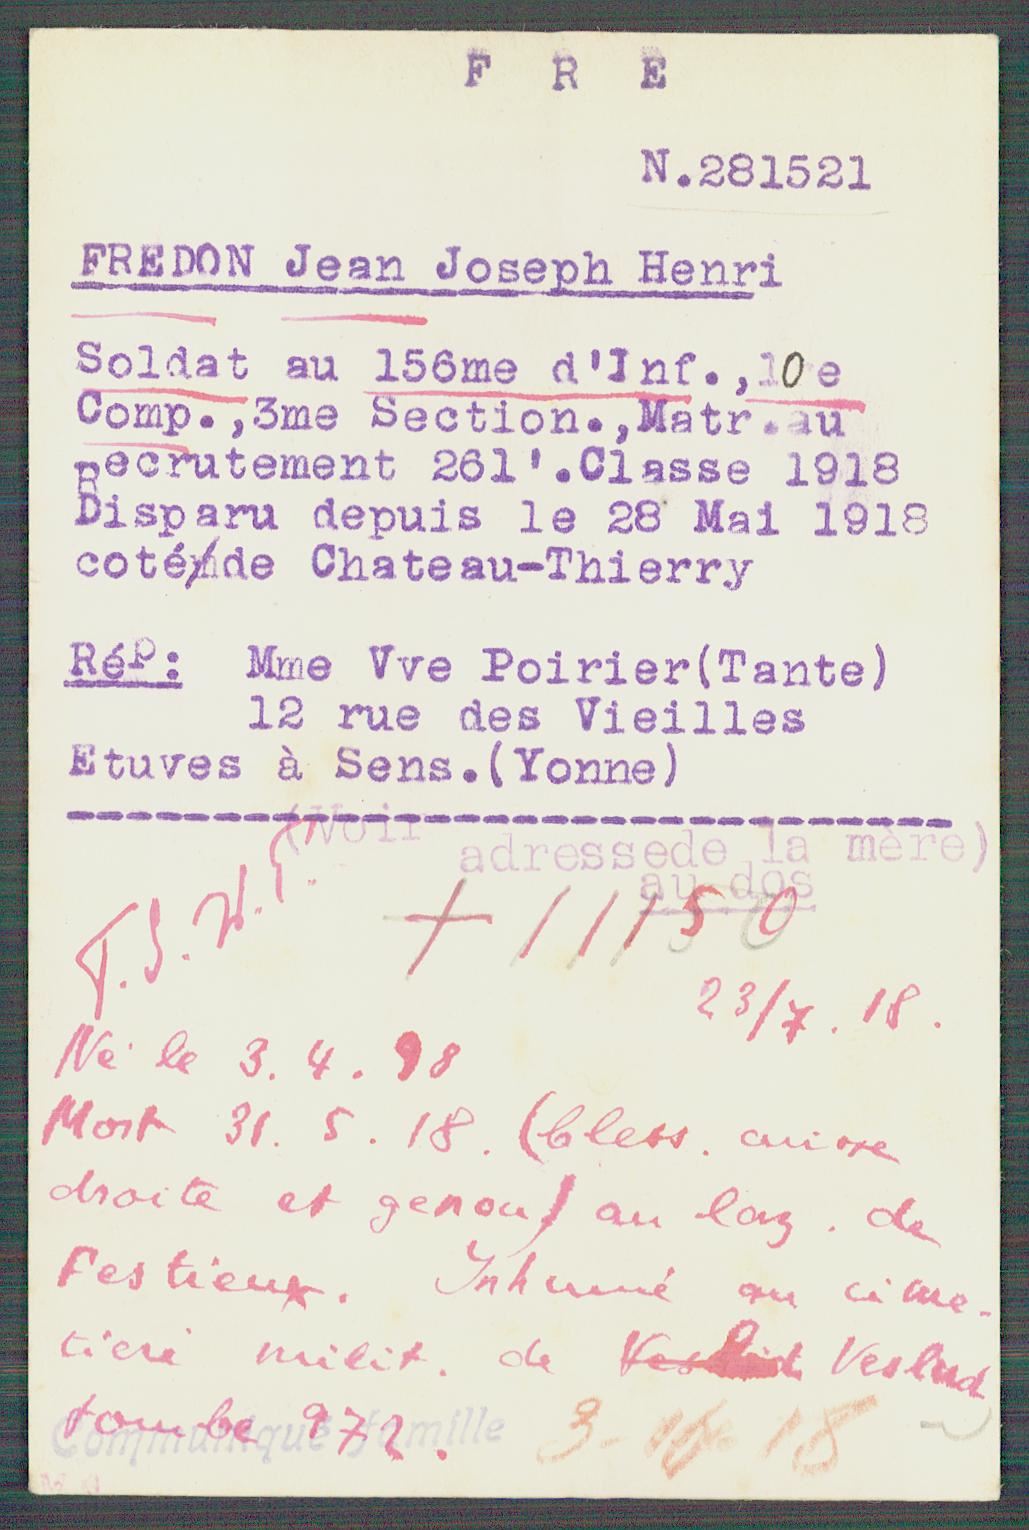 F R E
N.281521
FREDON Jean Joseph Henri
Soldat au 156me d'Inf.,10e
Comp.,3me Section.,Matr.au
Recrutement 261'.Classe 1918
Disparu depuis le 28 Mai 1918
coté de Chateau-Thierry
Rép: Mme Vve Poirier(Tante)
12 rue des Vieilles
Etuves à Sens.(Yonne)
(Voir
adressede la mère)
au dos
+ 11150
23/7.18.
Né le 3.4.98
Mort 31.5.18. (bless. cuisse
droite et genou) au laz. de
Festieux. Inhumé au cime-
tière milit. de Veslud
tombe 972.
Communiqué famille 3-10-18